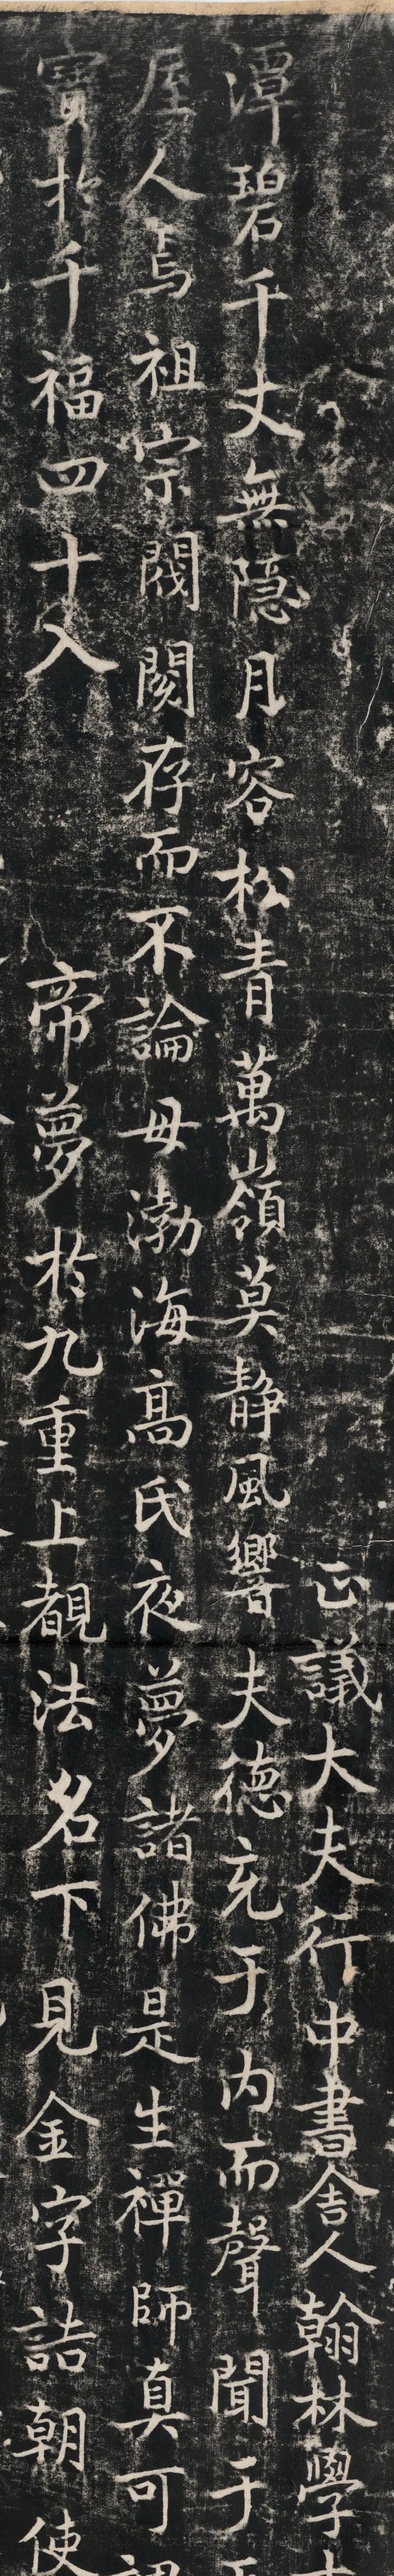 正議大夫行中書舍人翰林學
潭碧千丈無隱月容松青萬嶺莫靜風響夫德充于内而聲聞于
屋人焉祖宗閥閱存而不論母渤海高氏夜夢諸佛是生禪師真可
寶於千福四十入帝夢於九重上覩法名下見金字詰朝使